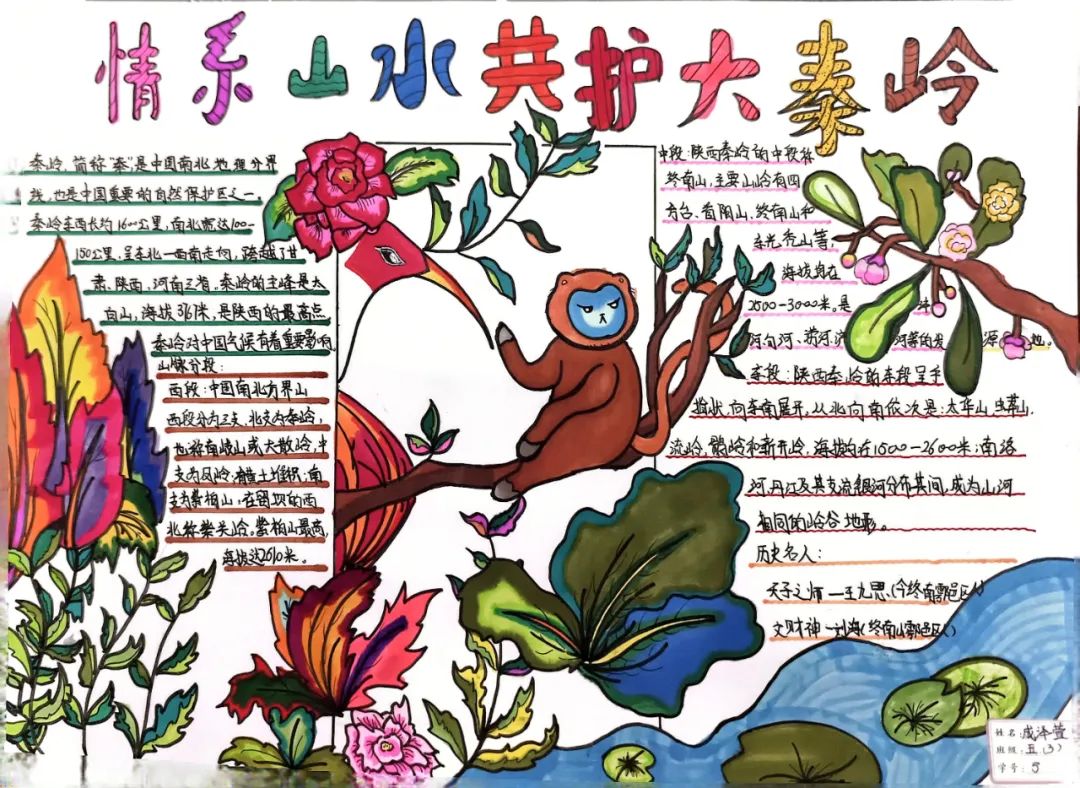 情系山水共护大秦岭
秦岭,简称"秦",是中国南北地理分界
线,也是中国重要的自然保护区之一
秦岭东西长约1600公里,南北宽达100-
150公里,呈东北一西南走向,跨越了甘
肃、陕西、河南三省,秦岭的主峰是太
白山,海拔3767米,是陕西的最高点
秦岭对中国气候有着重要影响,
山脉分段:
西段:中国南北方界山
西段分为三支,北支为秦岭,
也称南岐山或大散岭;中
支为凤岭;南
支为紫柏山,在留坝的西
北称柴关岭。紫柏山最高,
海拔达2610米。
中段:陕西秦岭的中段称
终南山,主要山岭有四
方台、首阳山、终南山和
东光秃山等,
海拔均在
2500-3000米。是
河等的发 源 地。
东段:陕西秦岭的东段呈手
指状,向东南展开,从北向南依次是:太华山、
流岭、鹘岭和新开岭,海拔均在1500-2600米;南洛
河、丹江及其支流银河分布其间,成为山河
相同的岭谷地形。
历史名人:
天子之师—王九思(今终南鄠邑区人)
文财神—刘海(终南山鄠邑区人)
姓名:成泽萱
班级:五(3)
学号:5